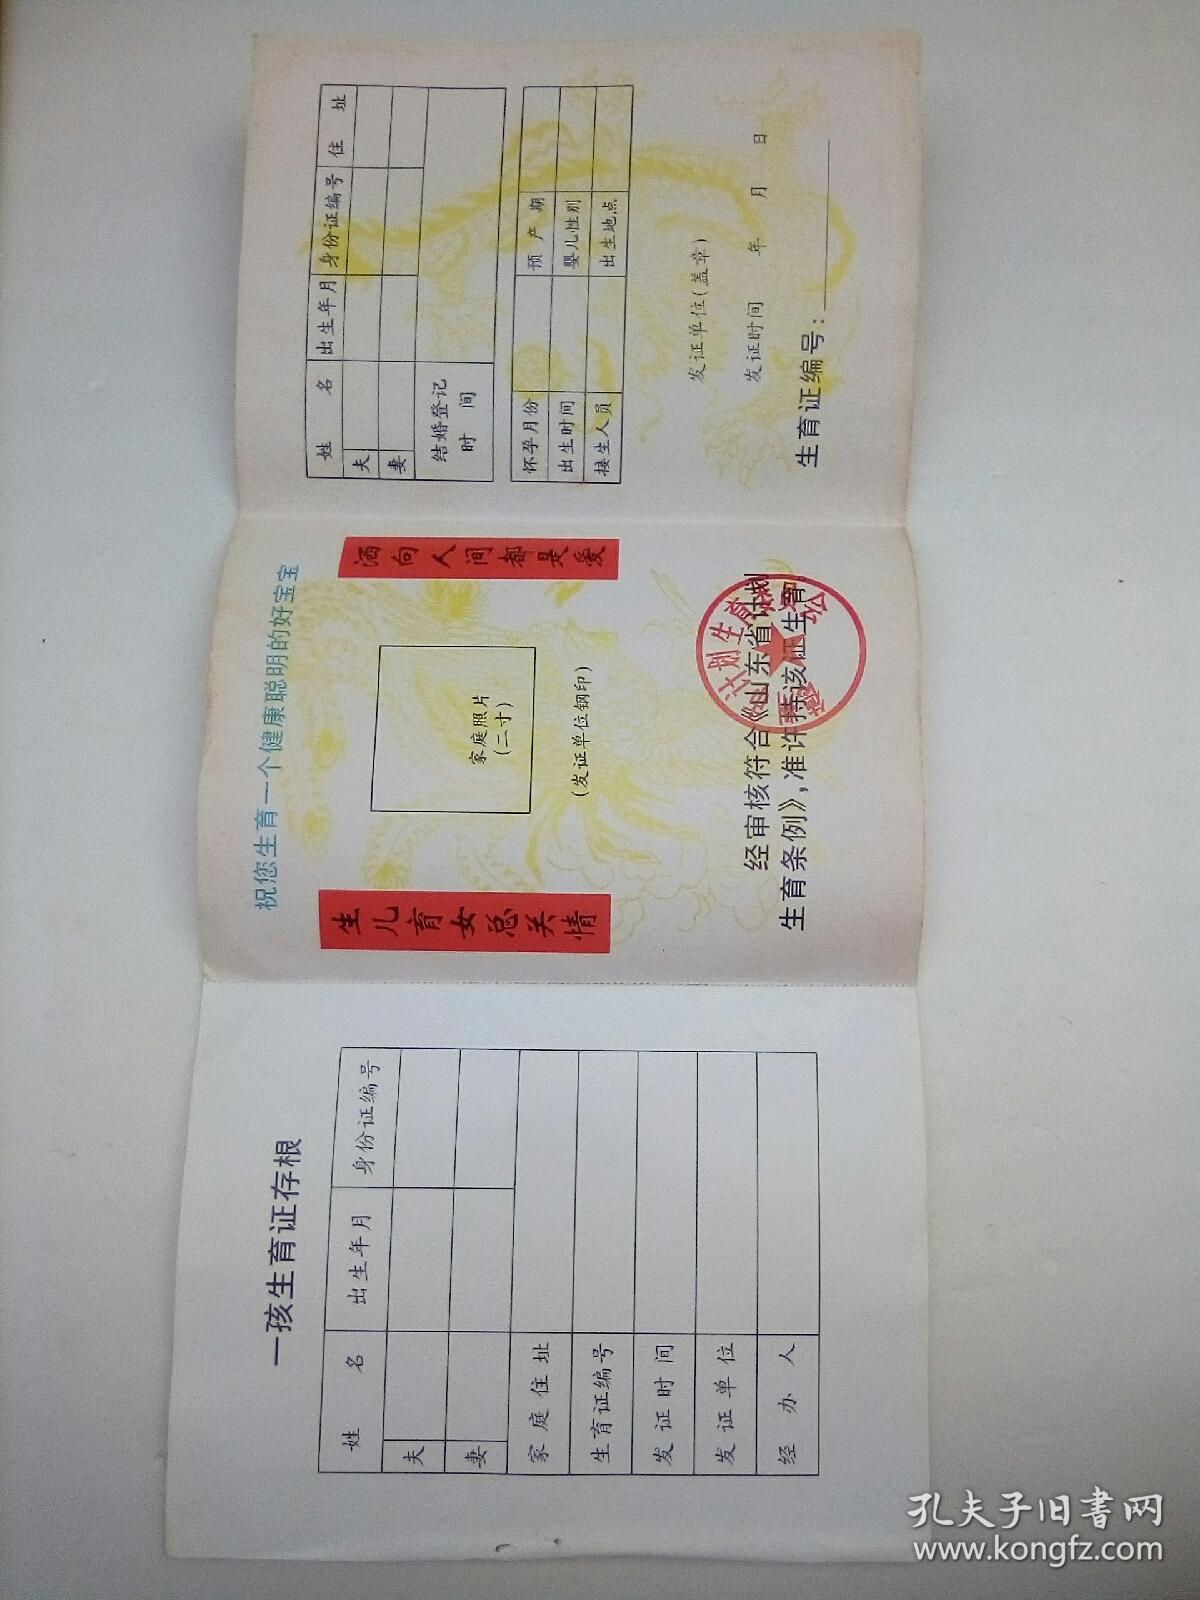 一孩生育证存根
姓名 出生年月 身份证编号
夫
妻
家庭住址
生育证编号
发证时间
发证单位
经办人
祝您生育一个健康聪明的好宝宝
生儿育女总关情
洒向人间都是爱
家庭照片
(二寸)
(发证单位钢印)
经审核符合《山东省计划
生育条例》,准许持该证生育。
计划生育
姓名 出生年月 身份证编号 住址
夫
妻
结婚登记
时间
怀孕月份 预产期
出生时间 婴儿性别
接生人员 出生地点
发证单位(盖章)
发证时间 年 月 日
生育证编号:
孔夫子旧书网
www.kongfz.com